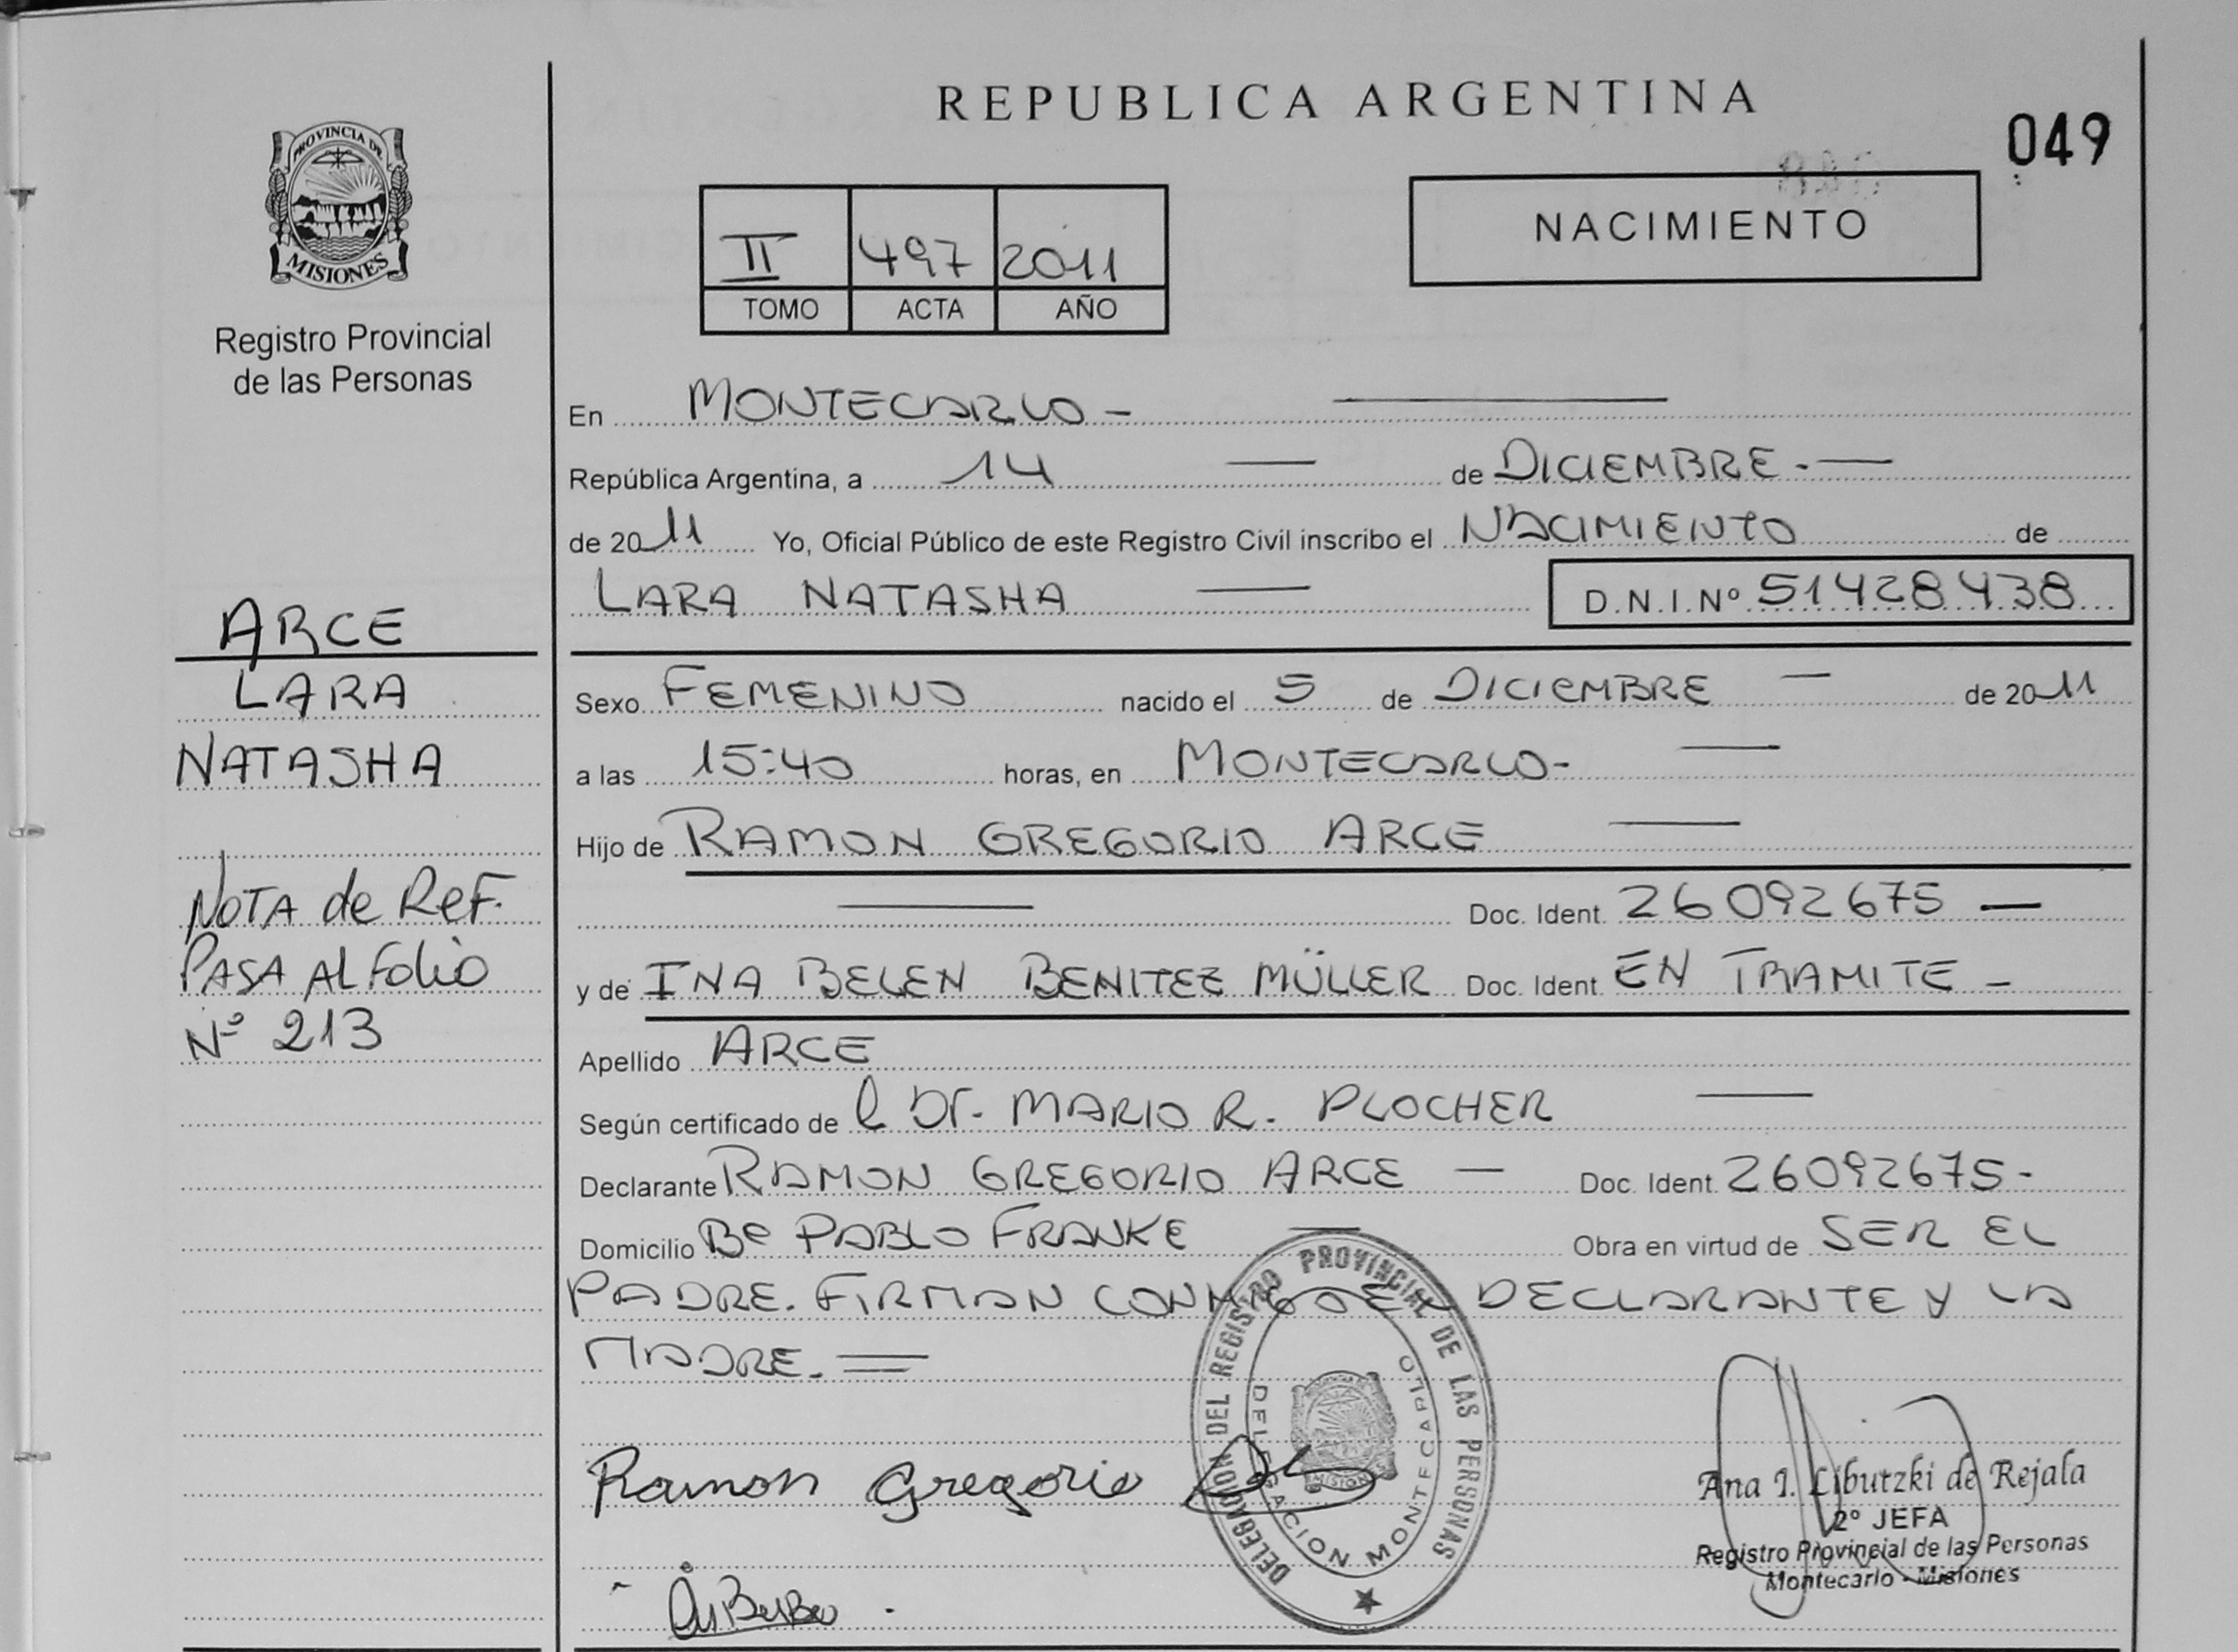 REPUBLICA ARGENTINA
049
PROVINCIA DE
MISIONES
Registro Provincial
de las Personas
II 497 2011
TOMO ACTA AÑO
NACIMIENTO
En MONTECARLO -
República Argentina, a 14 de DICIEMBRE.-
de 2011 Yo, Oficial Público de este Registro Civil inscribo el NACIMIENTO de
LARA NATASHA D.N.I.Nº 51428438
ARCE
LARA
NATASHA
NOTA de ReF.
PASA AL Folio
Nº 213
Sexo FEMENINO nacido el 5 de DICIEMBRE de 2011
a las 15:40 horas, en MONTECARLO-
Hijo de RAMON GREGORIO ARCE
Doc. Ident. 26092675 —
y de INA BELEN BENITEZ MÜLLER Doc. Ident. EN TRAMITE -
Apellido ARCE
Según certificado de l Dr. MARIO R. PLOCHER
Declarante RAMON GREGORIO ARCE — Doc. Ident. 26092675-
Domicilio Bº PABLO FRANKE Obra en virtud de SER EL
PADRE. FIRMAN CONMIGO EL DECLARANTE Y LA
MADRE.
DELEGACION DEL REGISTRO PROVINCIAL DE LAS PERSONAS
DELEGACION MONTECARLO
MISIONES
Ramon Gregorio
Ana I. Libutzki de Rejala
2º JEFA
Registro Provincial de las Personas
Montecarlo - Misiones